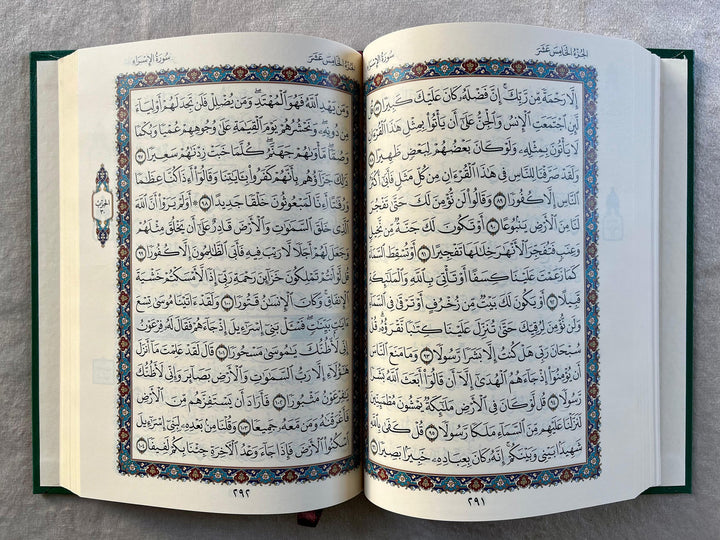 الجُزْءُ الخَامِسَ عَشَرَ سُورَةُ الإِسْرَاءِ
إِلَّا رَحْمَةً مِّن رَّبِّكَ إِنَّ فَضْلَهُۥ كَانَ عَلَيْكَ كَبِيرًا ٨٧ قُل
لَّئِنِ ٱجْتَمَعَتِ ٱلْإِنسُ وَٱلْجِنُّ عَلَىٰٓ أَن يَأْتُوا۟ بِمِثْلِ هَٰذَا ٱلْقُرْءَانِ
لَا يَأْتُونَ بِمِثْلِهِۦ وَلَوْ كَانَ بَعْضُهُمْ لِبَعْضٍ ظَهِيرًا ٨٨
وَلَقَدْ صَرَّفْنَا لِلنَّاسِ فِى هَٰذَا ٱلْقُرْءَانِ مِن كُلِّ مَثَلٍ فَأَبَىٰٓ أَكْثَرُ
ٱلنَّاسِ إِلَّا كُفُورًا ٨٩ وَقَالُوا۟ لَن نُّؤْمِنَ لَكَ حَتَّىٰ تَفْجُرَ
لَنَا مِنَ ٱلْأَرْضِ يَنۢبُوعًا ٩٠ أَوْ تَكُونَ لَكَ جَنَّةٌ مِّن نَّخِيلٍ
وَعِنَبٍ فَتُفَجِّرَ ٱلْأَنْهَٰرَ خِلَٰلَهَا تَفْجِيرًا ٩١ أَوْ تُسْقِطَ ٱلسَّمَآءَ
كَمَا زَعَمْتَ عَلَيْنَا كِسَفًا أَوْ تَأْتِىَ بِٱللَّهِ وَٱلْمَلَٰٓئِكَةِ
قَبِيلًا ٩٢ أَوْ يَكُونَ لَكَ بَيْتٌ مِّن زُخْرُفٍ أَوْ تَرْقَىٰ فِى ٱلسَّمَآءِ
وَلَن نُّؤْمِنَ لِرُقِيِّكَ حَتَّىٰ تُنَزِّلَ عَلَيْنَا كِتَٰبًا نَّقْرَؤُهُۥ قُلْ
سُبْحَانَ رَبِّى هَلْ كُنتُ إِلَّا بَشَرًا رَّسُولًا ٩٣ وَمَا مَنَعَ ٱلنَّاسَ
أَن يُؤْمِنُوٓا۟ إِذْ جَآءَهُمُ ٱلْهُدَىٰٓ إِلَّآ أَن قَالُوٓا۟ أَبَعَثَ ٱللَّهُ بَشَرًا
رَّسُولًا ٩٤ قُل لَّوْ كَانَ فِى ٱلْأَرْضِ مَلَٰٓئِكَةٌ يَمْشُونَ مُطْمَئِنِّينَ
لَنَزَّلْنَا عَلَيْهِم مِّنَ ٱلسَّمَآءِ مَلَكًا رَّسُولًا ٩٥ قُلْ كَفَىٰ بِٱللَّهِ
شَهِيدًۢا بَيْنِى وَبَيْنَكُمْ إِنَّهُۥ كَانَ بِعِبَادِهِۦ خَبِيرًۢا بَصِيرًا ٩٦
٢٩١
الجُزْءُ الخَامِسَ عَشَرَ سُورَةُ الإِسْرَاءِ
وَمَن يَهْدِ ٱللَّهُ فَهُوَ ٱلْمُهْتَدِ وَمَن يُضْلِلْ فَلَن تَجِدَ لَهُمْ أَوْلِيَآءَ
مِن دُونِهِۦ وَنَحْشُرُهُمْ يَوْمَ ٱلْقِيَٰمَةِ عَلَىٰ وُجُوهِهِمْ عُمْيًا وَبُكْمًا
وَصُمًّا مَّأْوَىٰهُمْ جَهَنَّمُ كُلَّمَا خَبَتْ زِدْنَٰهُمْ سَعِيرًا ٩٧
ذَٰلِكَ جَزَآؤُهُم بِأَنَّهُمْ كَفَرُوا۟ بِـَٔايَٰتِنَا وَقَالُوٓا۟ أَءِذَا كُنَّا عِظَٰمًا
وَرُفَٰتًا أَءِنَّا لَمَبْعُوثُونَ خَلْقًا جَدِيدًا ٩٨ ۞ أَوَلَمْ يَرَوْا۟ أَنَّ ٱللَّهَ
ٱلَّذِى خَلَقَ ٱلسَّمَٰوَٰتِ وَٱلْأَرْضَ قَادِرٌ عَلَىٰٓ أَن يَخْلُقَ مِثْلَهُمْ
وَجَعَلَ لَهُمْ أَجَلًا لَّا رَيْبَ فِيهِ فَأَبَى ٱلظَّٰلِمُونَ إِلَّا كُفُورًا ٩٩
قُل لَّوْ أَنتُمْ تَمْلِكُونَ خَزَآئِنَ رَحْمَةِ رَبِّىٓ إِذًا لَّأَمْسَكْتُمْ خَشْيَةَ
ٱلْإِنفَاقِ وَكَانَ ٱلْإِنسَٰنُ قَتُورًا ١٠٠ وَلَقَدْ ءَاتَيْنَا مُوسَىٰ تِسْعَ
ءَايَٰتٍۭ بَيِّنَٰتٍ فَسْـَٔلْ بَنِىٓ إِسْرَٰٓءِيلَ إِذْ جَآءَهُمْ فَقَالَ لَهُۥ فِرْعَوْنُ
إِنِّى لَأَظُنُّكَ يَٰمُوسَىٰ مَسْحُورًا ١٠١ قَالَ لَقَدْ عَلِمْتَ مَآ أَنزَلَ
هَٰٓؤُلَآءِ إِلَّا رَبُّ ٱلسَّمَٰوَٰتِ وَٱلْأَرْضِ بَصَآئِرَ وَإِنِّى لَأَظُنُّكَ
يَٰفِرْعَوْنُ مَثْبُورًا ١٠٢ فَأَرَادَ أَن يَسْتَفِزَّهُم مِّنَ ٱلْأَرْضِ
فَأَغْرَقْنَٰهُ وَمَن مَّعَهُۥ جَمِيعًا ١٠٣ وَقُلْنَا مِنۢ بَعْدِهِۦ لِبَنِىٓ إِسْرَٰٓءِيلَ
ٱسْكُنُوا۟ ٱلْأَرْضَ فَإِذَا جَآءَ وَعْدُ ٱلْءَاخِرَةِ جِئْنَا بِكُمْ لَفِيفًا ١٠٤
الحِزْبُ
٣٠
٢٩٢